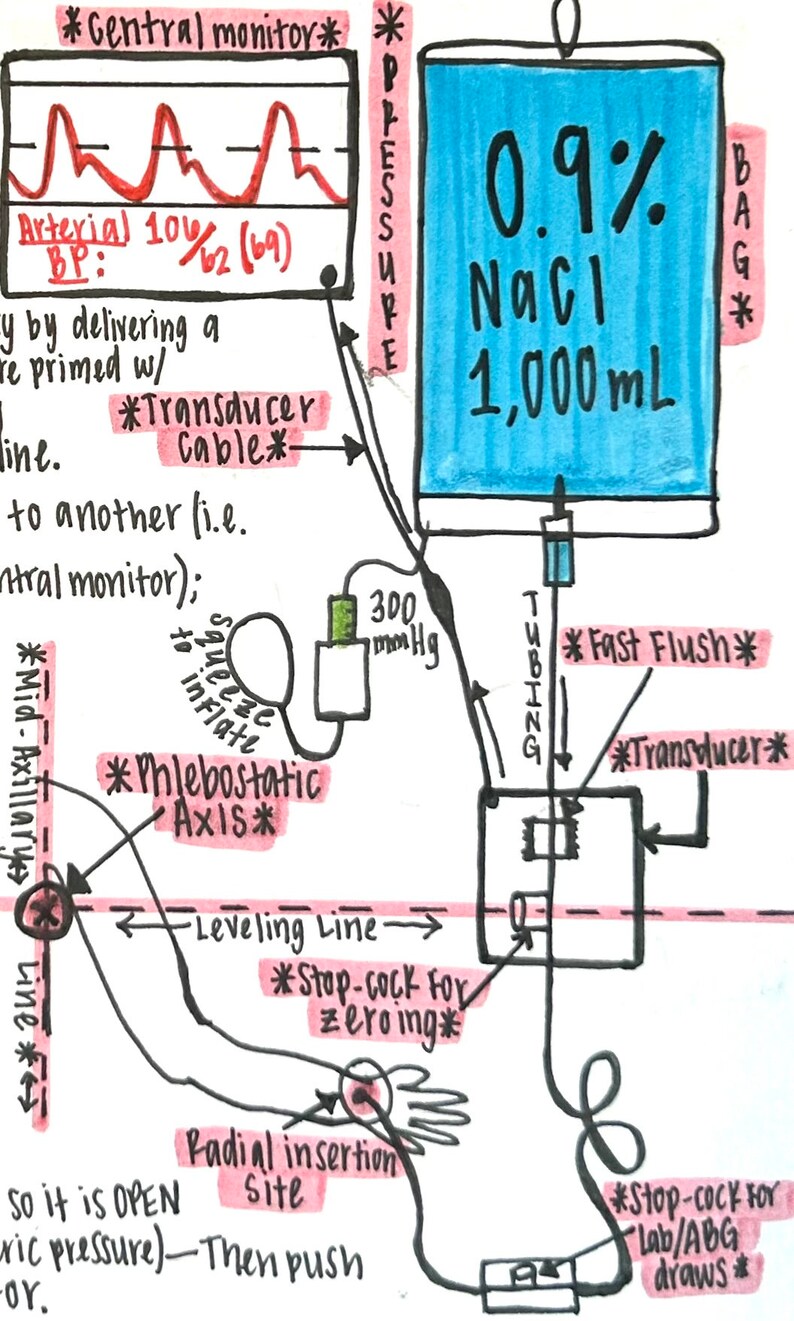 *Central monitor*
Arterial 106/62 (69)
BP:
*PRESSURE
BAG*
0.9%
NaCl
1,000mL
y by delivering a
re primed w/
line.
*Transducer
Cable*
to another (i.e.
ntral monitor);
300
mmHg
squeeze
to inflate
TUBING
*Fast Flush*
*Transducer*
*Mid-Axillary
Line*
*Phlebostatic
Axis*
Leveling Line
*Stop-cock for
zeroing*
Radial insertion
site
so it is OPEN
ric pressure)—Then push
or.
*Stop-cock for
Lab/ABG
draws*